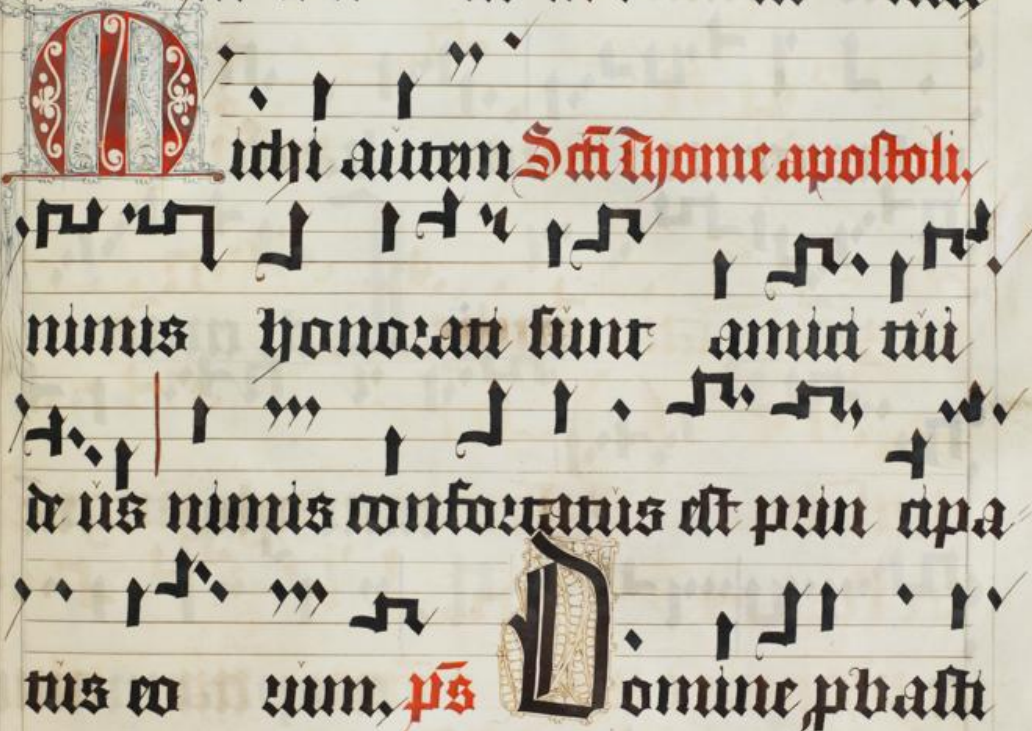 Michi autem Scti Thome apostoli.
nimis honorati sunt amici tui
de us nimis confortatus est prin cipa
tus eo rum. ps Domine pbasti